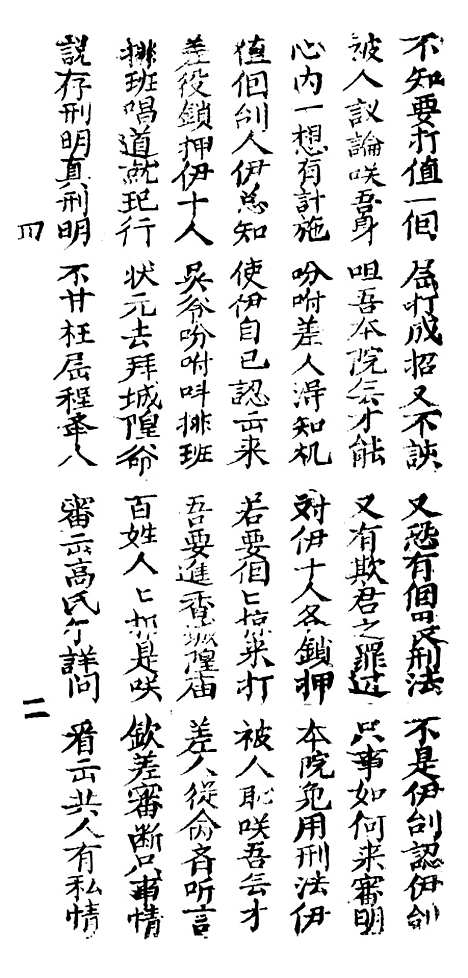 不知要打值一個 屈打成招又不諛 又恐有個受刑法 不是伊刣認伊刣
被人議論咲吾身 咀吾本院无才能 又有欺君之罪过 只事如何来審明
心内一想有計施 吩咐差人淂知机 对伊十人各鎖押 本院免用刑法伊
值個刣人伊总知 使伊自己認出来 若要個匕掠来打 被人恥咲吾无才
差役鎖押伊十人 爷吩咐呌排班 吾要進香城隍庙 差人從命齐听言
排班唱道就起行 状元去拜城隍爺 百姓人匕都是咲 欽差審断只事情
説存刑明真刑明 不甘枉屈程人 審出高氏个詳问 看出共人有私情
四
二